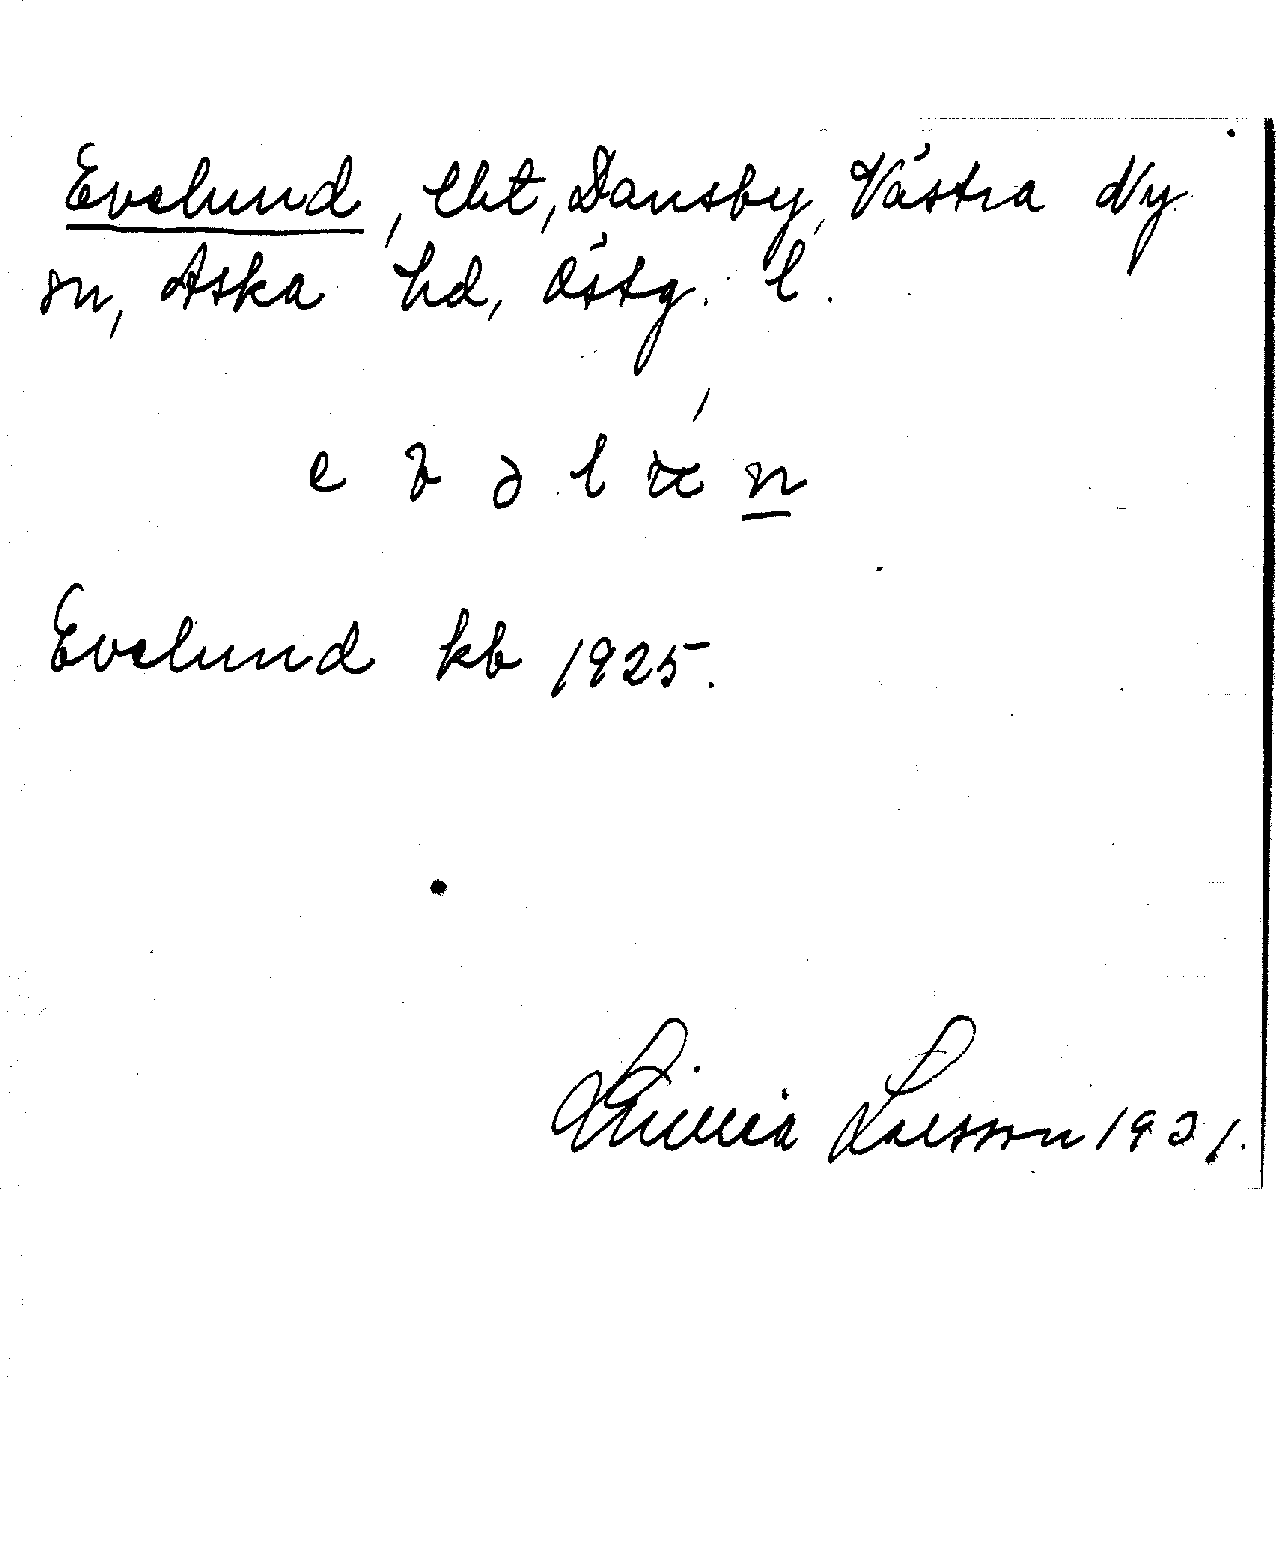 Evelund, lht, Dansby, Västra Ny
sn, Aska hd, Östg. l.
e v ə l u n
Evelund kb 1925.
Linnéa Larsson 1931.